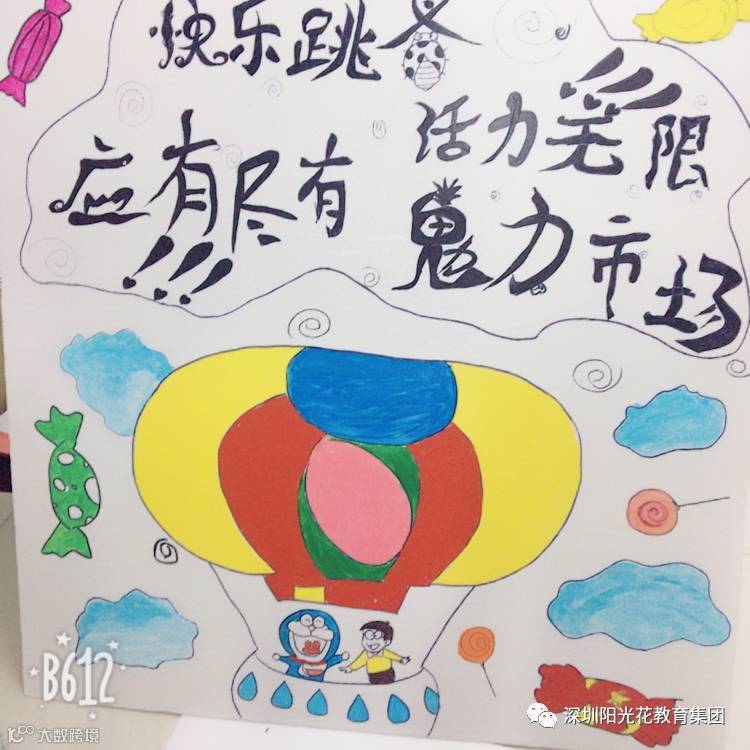 快乐跳蚤
活力无限
应有尽有!!!
魅力市场
B612
大数跨境
深圳阳光花教育集团